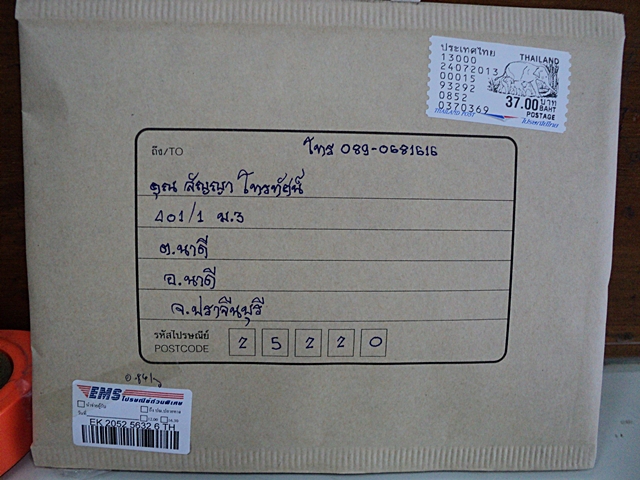 ประเทศไทย
THAILAND
13000
24072013
00015
93292
0852
0370369
37.00 บาท
BAHT
POSTAGE
THAILAND POST
ไปรษณีย์ไทย
ถึง/TO
โทร 089-0681616
คุณ สัญญา โทรทัศน์
401/1 ม.3
ต.นาดี
อ.นาดี
จ.ปราจีนบุรี
รหัสไปรษณีย์
POSTCODE
2 5 2 2 0
EMS
ไปรษณีย์ด่วนพิเศษ
EK 2052 5632 6 TH